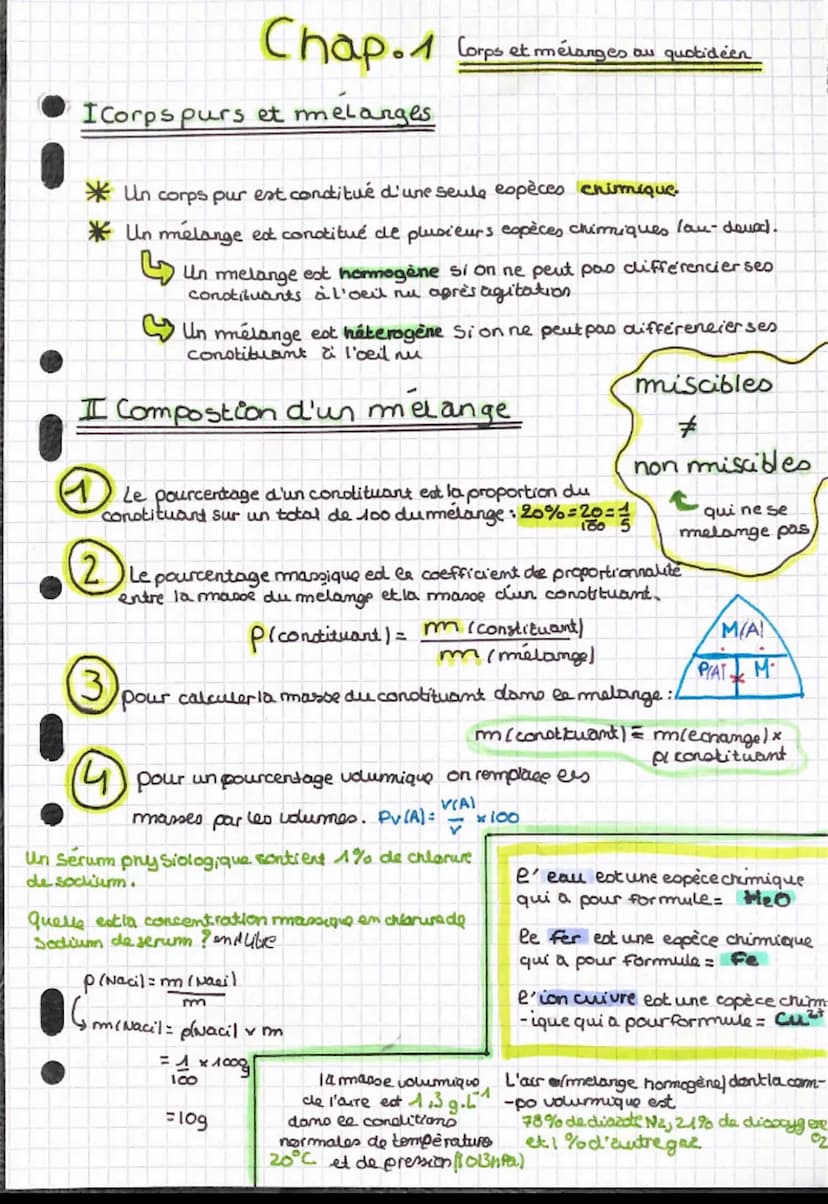 Chap.1 Corps et mélanges au quotidéen
I Corps purs et mélanges
* Un corps pur est constitué d'une seule espèces chimique.
* Un mélange est constitué de plusieurs espèces chimiques (au-deux).
Un melange est homogène si on ne peut pas différencier ses
constituants à l'oeil nu après agitation
Un mélange est hétérogène si on ne peut pas différencier ses
constituant à l'oeil nu
miscibles
≠
non miscibles
qui ne se
melange pas
II Compostion d'un mélange
1 Le pourcentage d'un constituant est la proportion du
constituant sur un total de 100 du mélange : 20% = 20/100 = 1/5
2 Le pourcentage massique est le coefficient de proportionnalité
entre la masse du melange et la masse d'un constituant.
p(constituant) = m (constituant) / m (mélange)
M(A)
P(A) x M
3 pour calculer la masse du constituant dans le melange :
m (constituant) = m(echange) x
p(constituant
4 pour un pourcentage volumique on remplace les
masses par les volumes. Pv(A) = V(A)/V x100
Un sérum physiologique contient 1% de chlorure
de sodium.
Quelle est la concentration massique en chlorure de
sodium de serum ? en d/litre
p(Nacl) = m (Nacl) / m
m(Nacl) = p(Nacl) x m
= 1/100 x 1000g
= 10g
l'eau est une espèce chimique
qui a pour formule = H2O
le fer est une espèce chimique
qui a pour formule = Fe
l'ion cuivre est une espèce chim-
-ique qui a pour formule = Cu2+
la masse volumique
de l'aire est 1,3 g.L-1
dans le conditions
normales de température
20°C et de pression (1013hPa)
L'air (melange homogène) dont la com-
-po volumique est
78% de diazote N2, 21% de dioxygene
O2
et 1% d'autre gaz